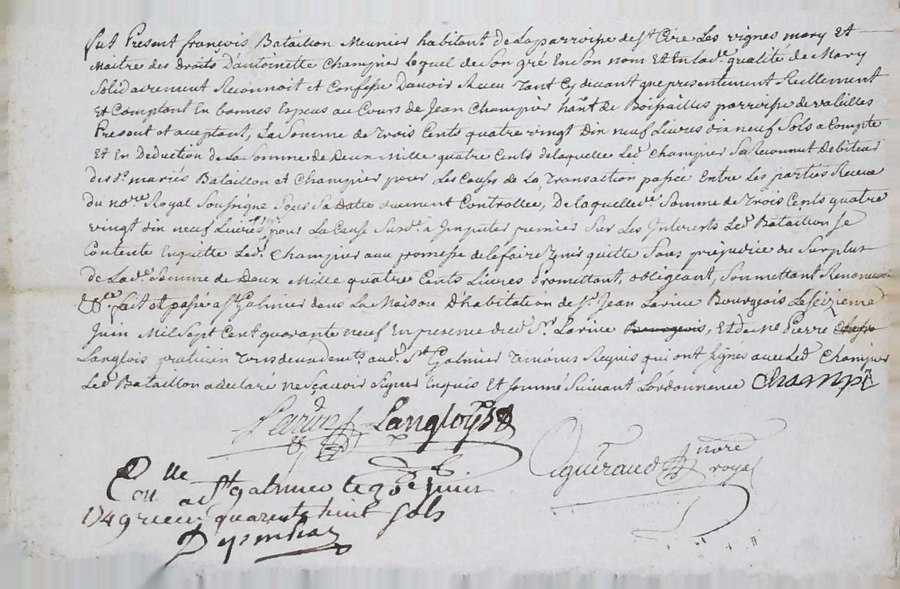 fut Present françois Bataillon Meunier habitant de la parroisse de St Cire Les vignes mary et
Maitre des Droits D'antoinette Champier Lequel de son gré En son nom Et En lad. qualité de Mary
Solidairement Reconnoit et Confesse D'avoir Receu Tant Cy devant que presentement Reellement
Et Comptant En bonnes Especes au Cours de Jean Champier hant de Boissailles parroisse de valeilles
Present et aceptant, La Somme de Trois Cents quatre vingt dix neuf Livres dix neuf Sols a Compte
Et En Deduction de La Somme de Deux Mille quatre Cents de laquelle Led. Champier Sa Reconnut Debiteur
des d. mariés Bataillon et Champier pour Les Causes de La Transaction passée Entre Les parties Receue
du nore Royal Soussigné Sous Sa Datte duement Controllée, De laquelle Somme de Trois Cents quatre
vingt dix neuf Livres pour La Cause Susd. a Imputer premier Sur Les Interets Led. Bataillon Se
Contente En quitte Led. Champier aux promesse de le faire Tenir quitte Sans prejudice du Surplus
de Lad. Somme de Deux Mille quatre Cents Livres promettant, obligeant, Soumettant Renonceant
&c. fait et passé a St Galmier dans La Maison D'habitation de Sr. Jean Larive Bourgeois Le Seizieme
Juin Mil Sept Cent quarante neuf En presence du d. Sr. Larive Bourgeois, Et de me Pierre
Langlois praticien aud. St Galmier Temoins Requis qui ont Signés avec Led. Champier
Led. Bataillon a declaré ne Sçavoir Signer Enquis Et Sommé Suivant Lordonnance Champier
Langloys
Gueraud nore royal
Con lle a St galmier le 30e Juin
1749 receu quarente huit Sols